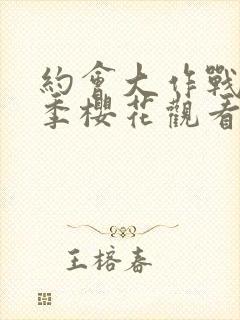 約會大作戰
季櫻花觀看
王榕春